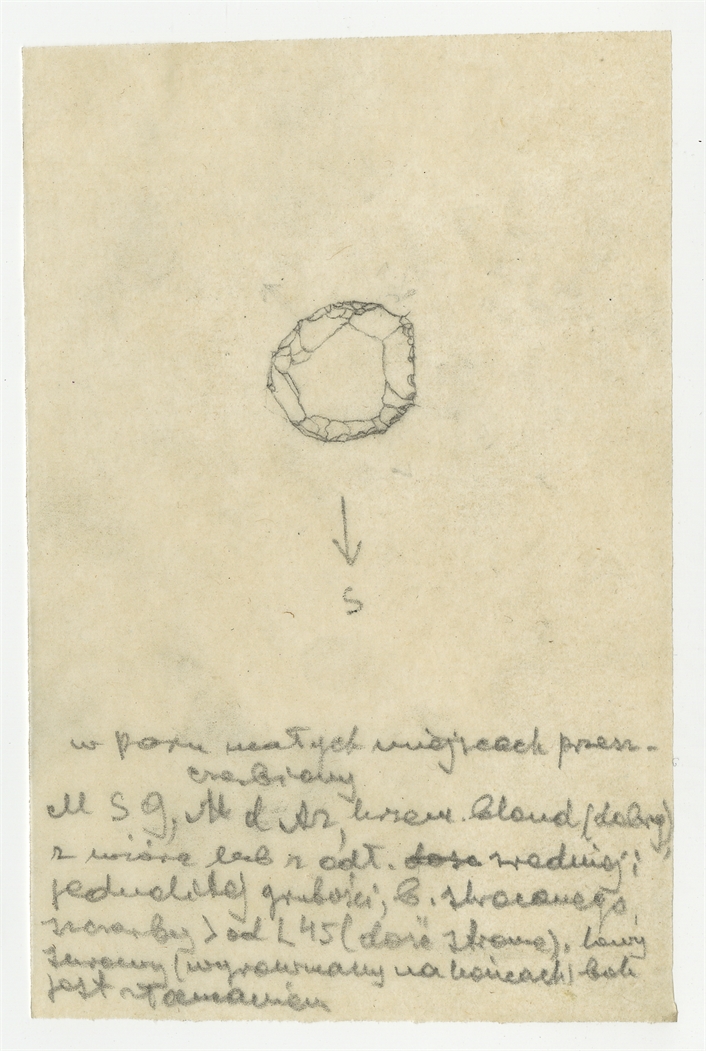 S
w paru małych miejscach przesz-
czerbiony
M S 9, M d Az, krzem. blond (dobry)
z wióra lub z odł. dość średniej i
jednolitej grubości, b. strocanego,
szczerby > od L 45 (dość strome), lewy
surowy (wyrównany na końcach) bok
jest złamaniem